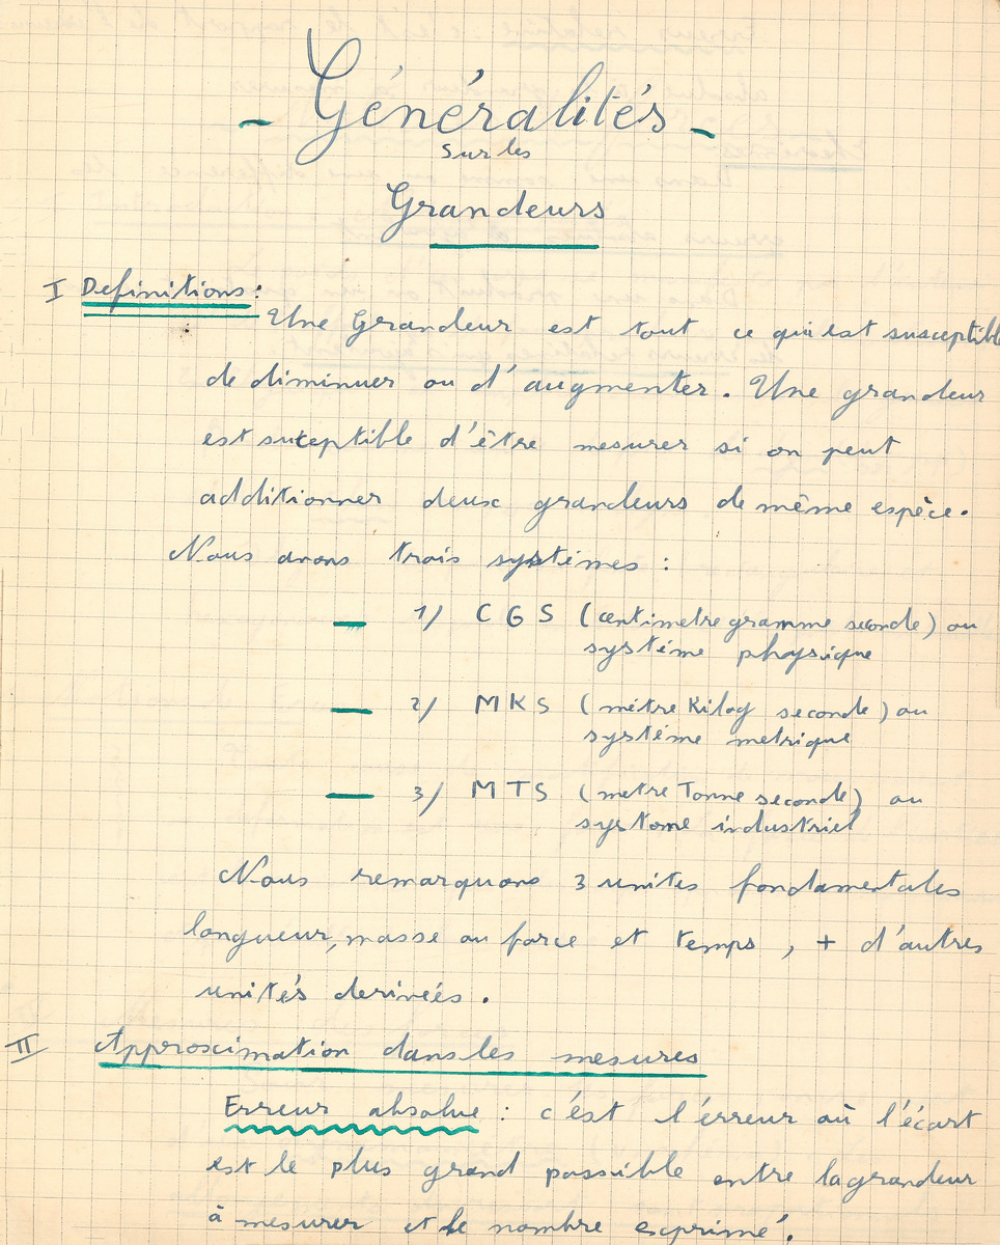 - Généralités -
Sur les
Grandeurs
I Definitions :
Une Grandeur est tout ce qui est susceptible
de diminuer ou d'augmenter. Une grandeur
est suceptible d'être mesurer si on peut
additionner deux grandeurs de même espèce.
Nous avons trois systèmes :
— 1/ CGS (centimetre gramme seconde) ou
système physique
— 2/ MKS (mètre Kilog seconde) ou
système metrique
— 3/ MTS (metre Tonne seconde) ou
systome industriel
Nous remarquons 3 unites fondamentales
longueur, masse ou force et temps, + d'autres
unités derivées.
II Approximation dans les mesures
Erreur absolue : c'ést l'érreur où l'écart
est le plus grand possible entre la grandeur
à mesurer et le nombre exprimé.